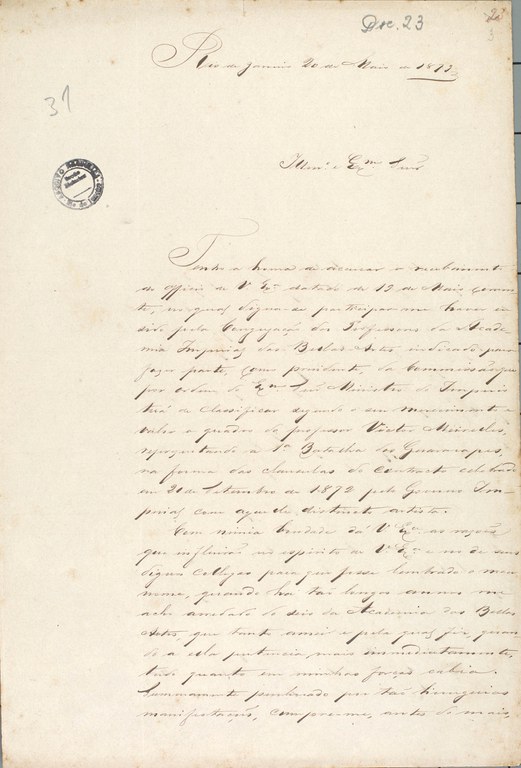 Doc. 23
31
Rio de Janeiro 20 de Maio de 1873
Illmo. e Exmo. Snr.
Tenho a honra de accusar o recebimento
do officio de V. Exa. datado de 12 de Maio corren-
te, no qual dignou-se participar-me haver eu
sido pela Congregação dos Professores da Acade-
mia Imperial das Bellas-Artes indicado para
fazer parte, como presidente, da Commissão que
por ordem do Exmo. Snr. Ministro do Imperio
terá de classificar segundo o seu merecimento e
valor o quadro do professor Victor Meirelles,
representando a 1a. Batalha dos Guararapes,
na forma das clausulas do contracto celebrado
em 31 de Setembro de 1872 pelo Governo Im-
perial com aquele distincto artista.
Com nimia bondade dá V. Exa. as razões
que influirão no espirito de V. Exa. e no de seus
dignos collegas para que fosse lembrado o meu
nome, quando há tão longos annos me
acho arredado do seio da Academia das Bellas
Artes, que tanto amei e pela qual fiz, quan-
do a ella pertencia mais immediatamente,
tudo quanto em minhas forças cabia.
Summamente penhorado por tão lisongeiras
manifestação, cumpre-me, antes de mais,